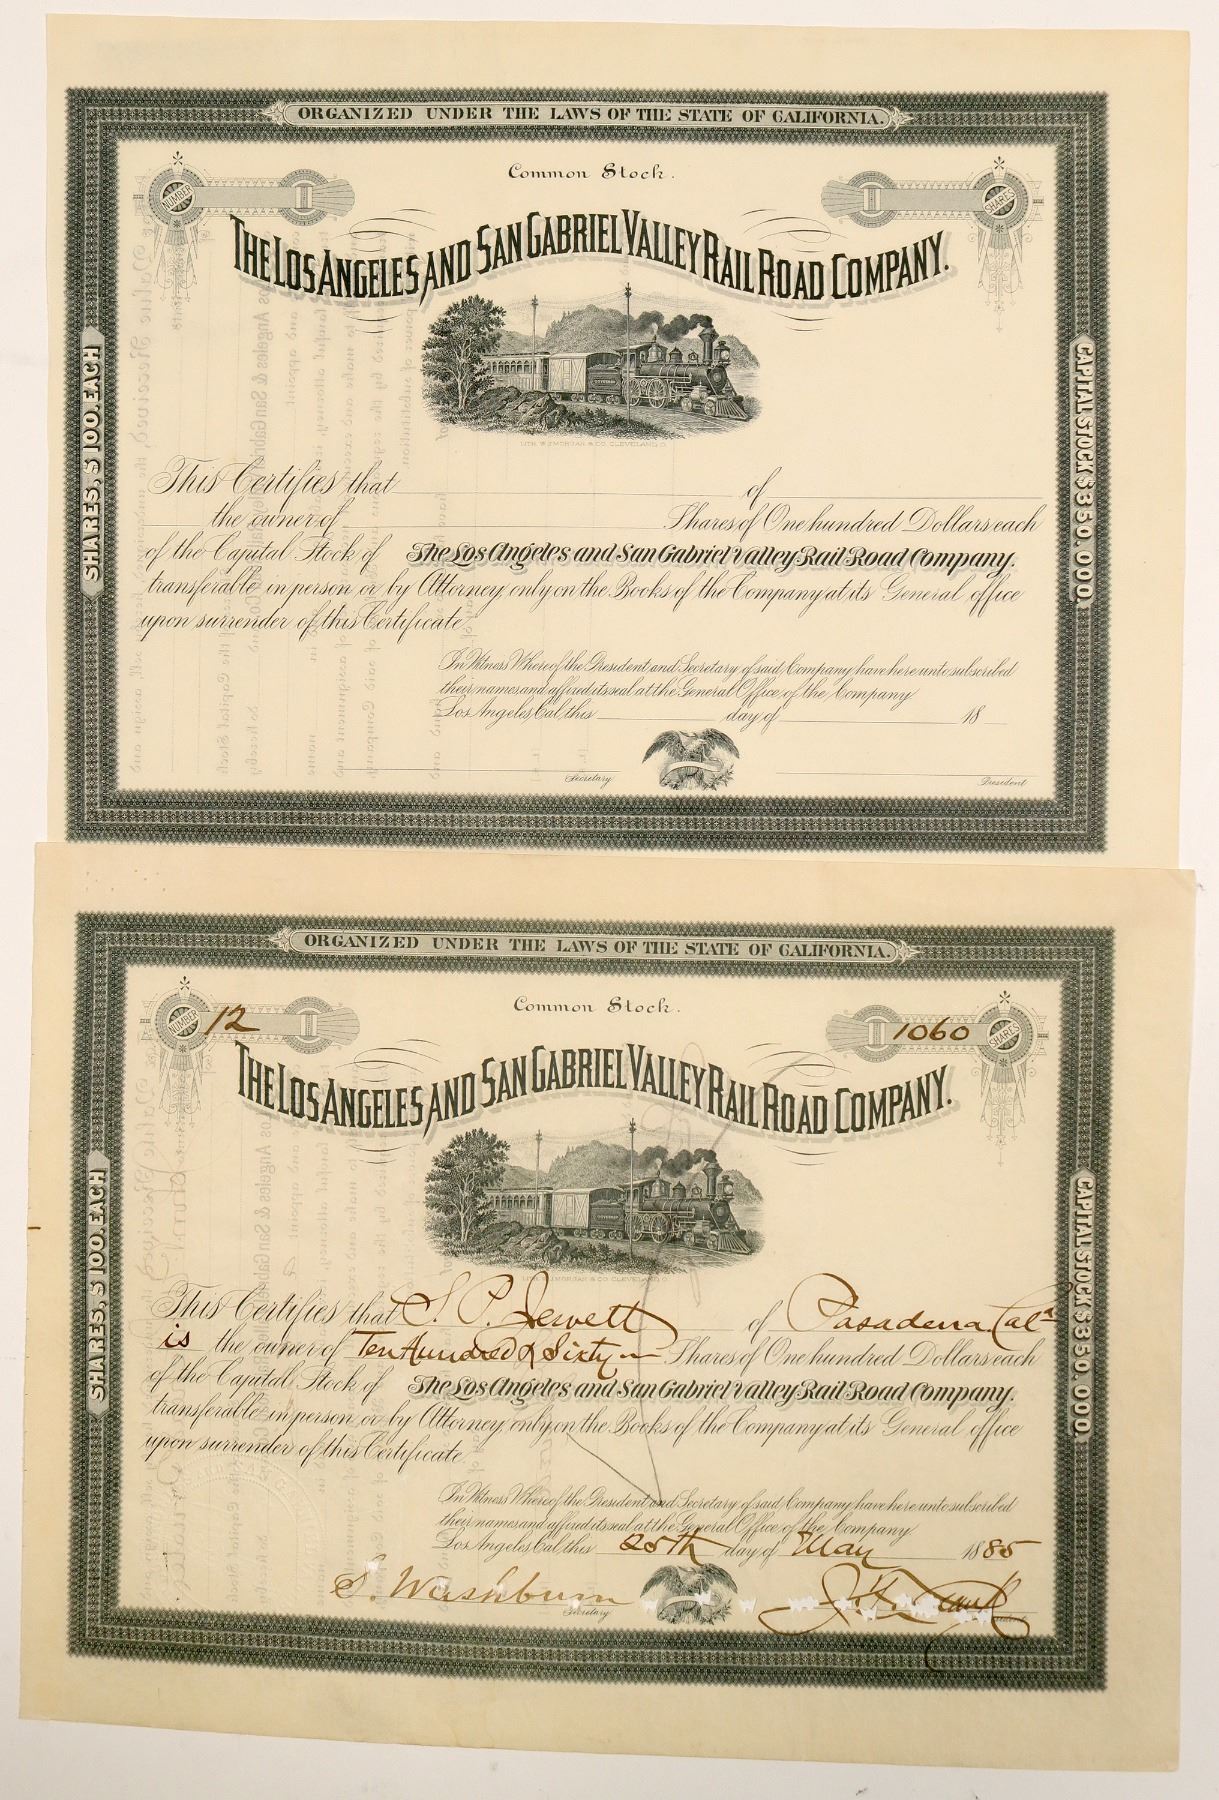 ORGANIZED UNDER THE LAWS OF THE STATE OF CALIFORNIA.
Common Stock.
NUMBER
SHARES
THE LOS ANGELES AND SAN GABRIEL VALLEY RAIL ROAD COMPANY.
SHARES, $100. EACH
CAPITAL STOCK $350,000.
LITH. W.J. MORGAN & CO. CLEVELAND, O.
This Certifies that of
the owner of Shares of One hundred Dollars each
of the Capital Stock of The Los Angeles and San Gabriel Valley Rail Road Company.
transferable in person or by Attorney only on the Books of the Company at its General office
upon surrender of this Certificate.
In Witness Whereof the President and Secretary of said Company have hereunto subscribed
their names and affixed its seal at the General Office of the Company
Los Angeles Cal. this day of 18
Secretary
President
ORGANIZED UNDER THE LAWS OF THE STATE OF CALIFORNIA.
Common Stock.
NUMBER 12
1060 SHARES
THE LOS ANGELES AND SAN GABRIEL VALLEY RAIL ROAD COMPANY.
SHARES, $100. EACH
CAPITAL STOCK $350,000.
LITH. W.J. MORGAN & CO. CLEVELAND, O.
This Certifies that S. P. Jewett of Pasadena Cala
is the owner of Ten Hundred & Sixty Shares of One hundred Dollars each
of the Capital Stock of The Los Angeles and San Gabriel Valley Rail Road Company.
transferable in person or by Attorney only on the Books of the Company at its General office
upon surrender of this Certificate.
In Witness Whereof the President and Secretary of said Company have hereunto subscribed
their names and affixed its seal at the General Office of the Company
Los Angeles Cal. this 25th day of May 1885
S. Washburn
Secretary